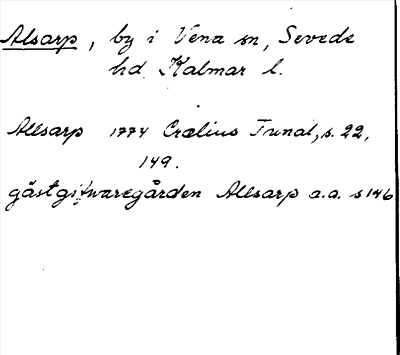 Alsarp, by i Vena sn, Sevede
hd Kalmar l.
Allsarp 1774 Crælius Tunal, s. 22,
149.
gästgifwaregården Allsarp a.a. s 146